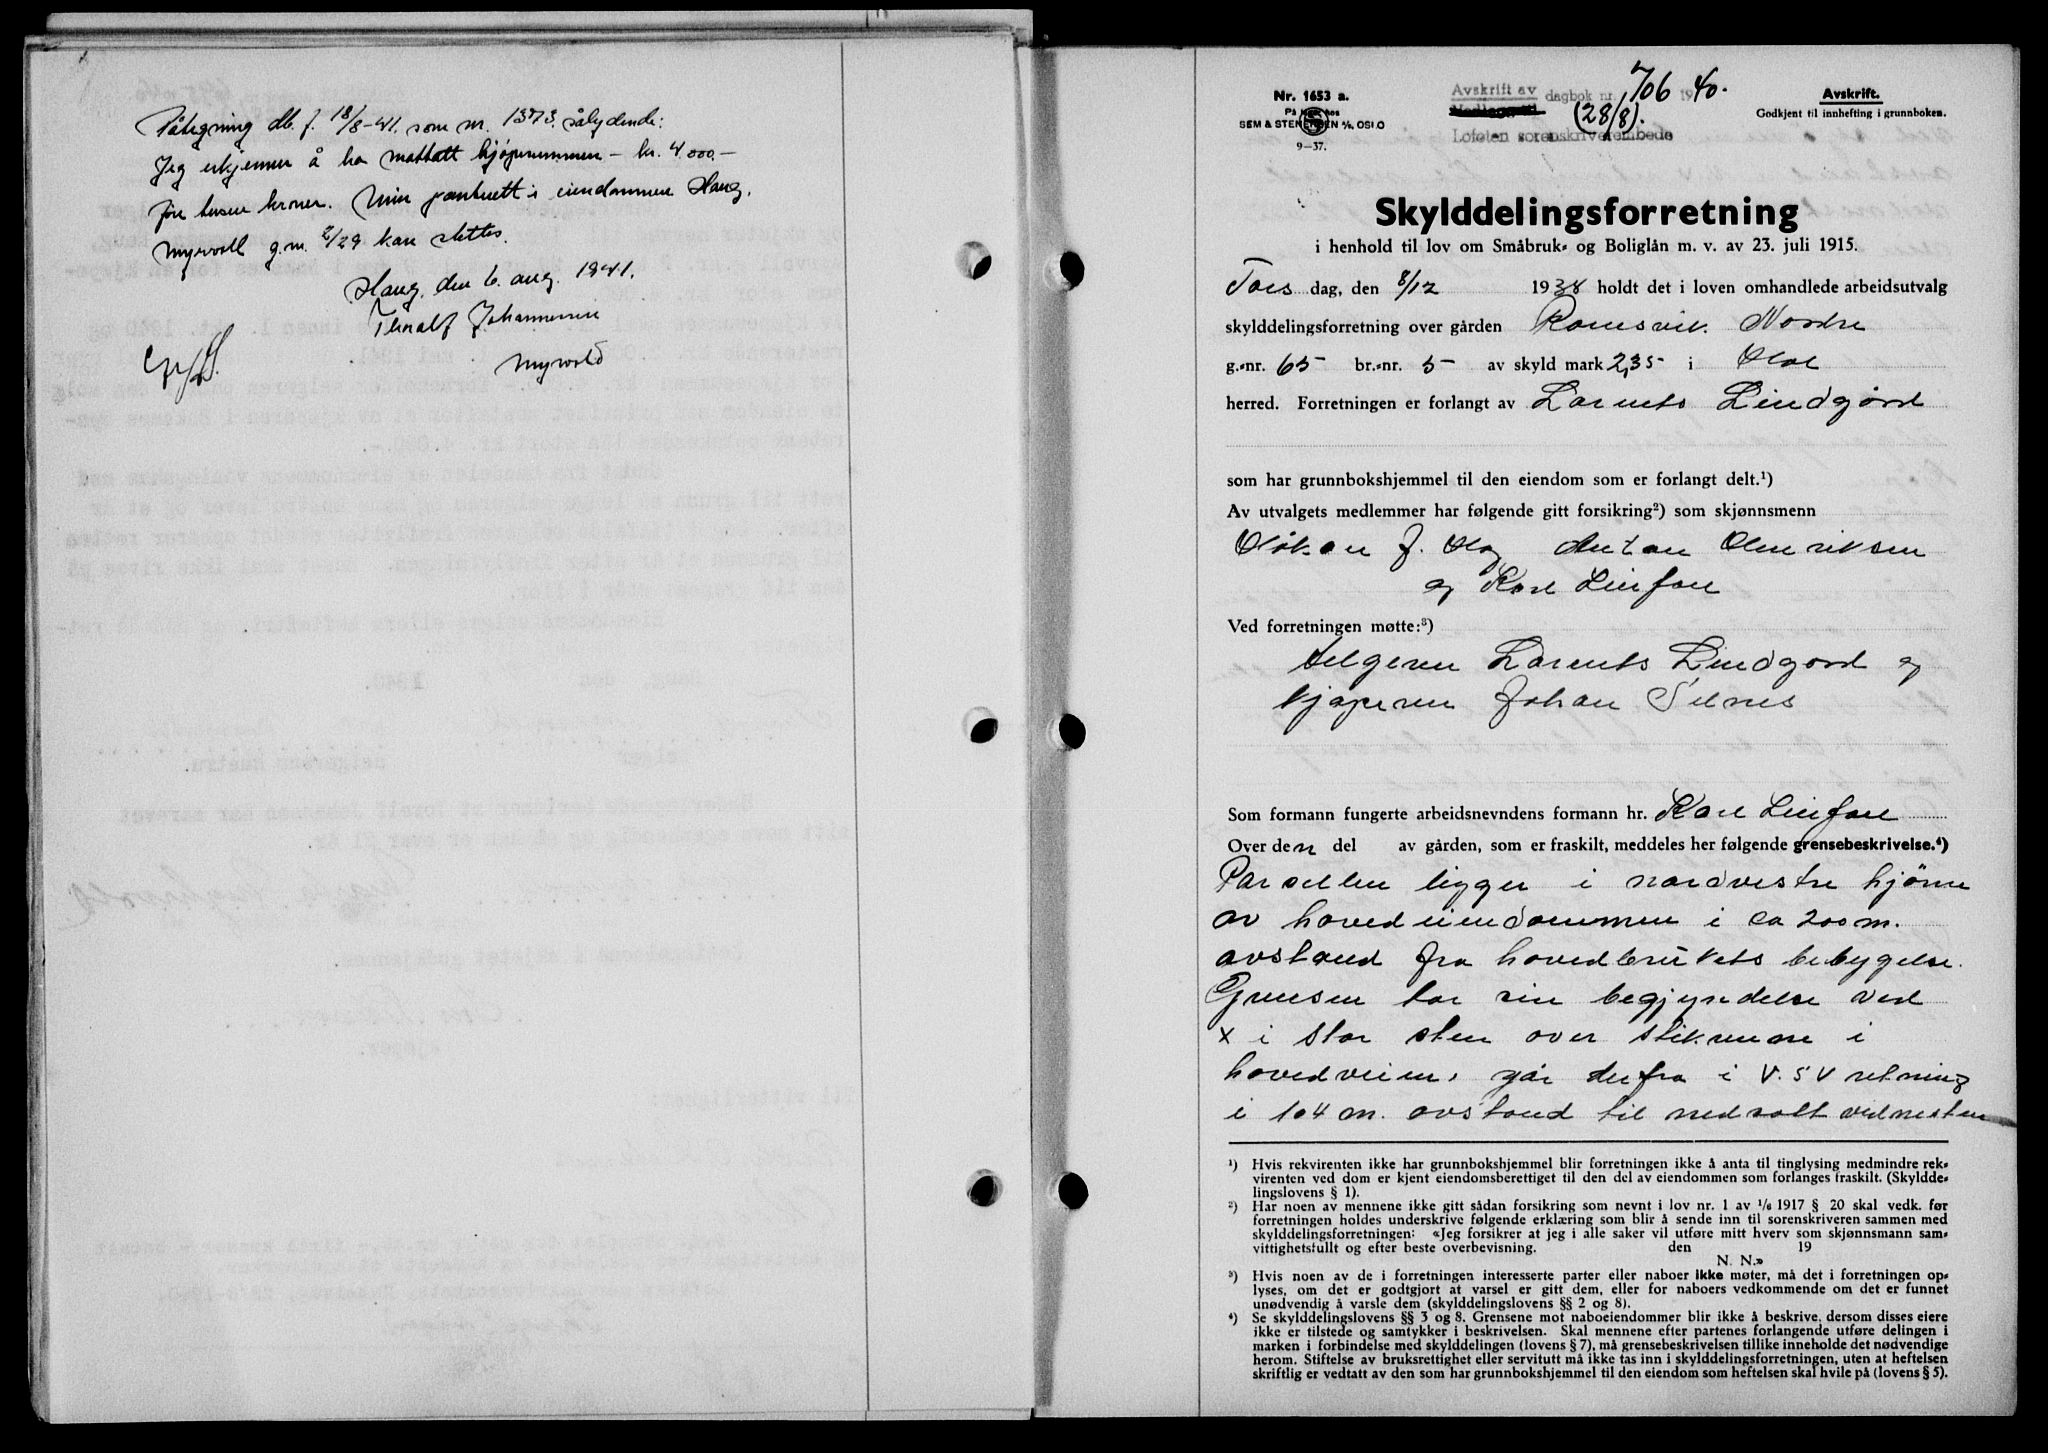 Påtegning db. f. 18/8-41. som nr. 1373. sålydende:
Jeg erkjenner å ha mottatt kjøpesummen – kr. 4000.–
fire tusen kroner. Min panterett i eiendommen Haug,
Myrvoll g.nr. 2/29 kan slettes.
Haug, den 6. aug. 1941.
Thoralf Johannessen
Myrvold
Nr. 1653 a.
SEM & STENERSEN A/S, OSLO
9–37.
Avskrift av dagbok nr. 706 1940.
(28/8).
Lofoten sorenskriverembede
Avskrift.
Godkjent til innhefting i grunnboken.
Skylddelingsforretning
i henhold til lov om Småbruk- og Boliglån m. v. av 23. juli 1915.
Tors dag, den 8/12 1938 holdt det i loven omhandlede arbeidsutvalg
skylddelingsforretning over gården Ramsvik Nordre
g.-nr. 65 br.-nr. 5 av skyld mark 2,35 i Hol
herred. Forretningen er forlangt av Lorents Lindgård
som har grunnbokshjemmel til den eiendom som er forlangt delt.¹)
Av utvalgets medlemmer har følgende gitt forsikring²) som skjønnsmenn
Håkon J. Hag Anton Henriksen
og Karl Leifan
Ved forretningen møtte:³)
Selgeren Lorents Lindgård og
kjøperen Johan Selnes
Som formann fungerte arbeidsnevndens formann hr. Karl Leifan
Over den del av gården, som er fraskilt, meddeles her følgende grensebeskrivelse.⁴)
Parsellen ligger i nordvestre hjørne
av hovedeiendommen i ca 200 m.
avstand fra hovedbrukets bebygelse.
Grensen tar sin begjyndelse ved
x i stor sten over stikrenne i
hovedveien, går derfra i V.SV retning
i 104 m. avstand til nedsatt vednesten
¹) Hvis rekvirenten ikke har grunnbokshjemmel blir forretningen ikke å anta til tinglysing medmindre rek-
virenten ved dom er kjent eiendomsberettiget til den del av eiendommen som forlanges fraskilt. (Skyldde-
lingslovens § 1).
²) Har noen av mennene ikke gitt sådan forsikring som nevnt i lov nr. 1 av 1/6 1917 § 20 skal vedk. før
forretningen holdes underskrive følgende erklæring som blir å sende inn til sorenskriveren sammen med
skylddelingsforretningen: «Jeg forsikrer at jeg i alle saker vil utføre mitt hverv som skjønnsmann sam-
vittighetsfullt og efter beste overbevisning. den 19
N. N.»
³) Hvis noen av de i forretningen interesserte parter eller naboer ikke møter, må det i forretningen op-
lyses, om det er godtgjort at varsel er gitt dem, eller for naboers vedkommende om det er funnet
unødvendig å varsle dem (skylddelingslovens §§ 2 og 8).
⁴) Se skylddelingslovens §§ 3 og 8. Grensene mot naboeiendommer blir ikke å beskrive, dersom disses eiere
ikke er tilstede og samtykker i beskrivelsen. Skal mennene efter partenes forlangende utføre delingen i
marken i forbindelse med skylddelingen (lovens § 7), må grensebeskrivelsen tillike inneholde det nødvendige
herom. Stiftelse av bruksrettighet eller servitutt må ikke tas inn i skylddelingsforretningen, uten at heftelsen
skriftlig er vedtatt av den som har grunnbokshjemmel til den eiendom som heftelsen skal hvile på (lovens § 5).